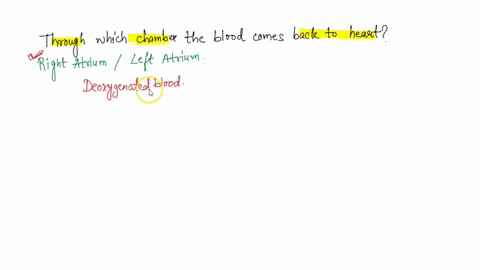 Through which chamber the blood comes back to heart?
Right Atrium / Left Atrium.
Deoxygenated blood.